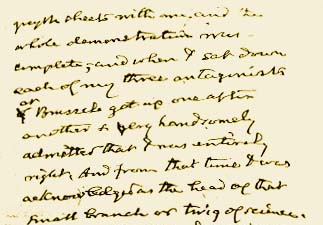 proof sheets with me, and the
whole demonstration was
complete, and when I sat down
each of my three antagonists
at Brussels got up one after
another & very handsomely
admitted that I was entirely
right, And from that time I was
acknowledged as the head of that
small branch or twig of science.